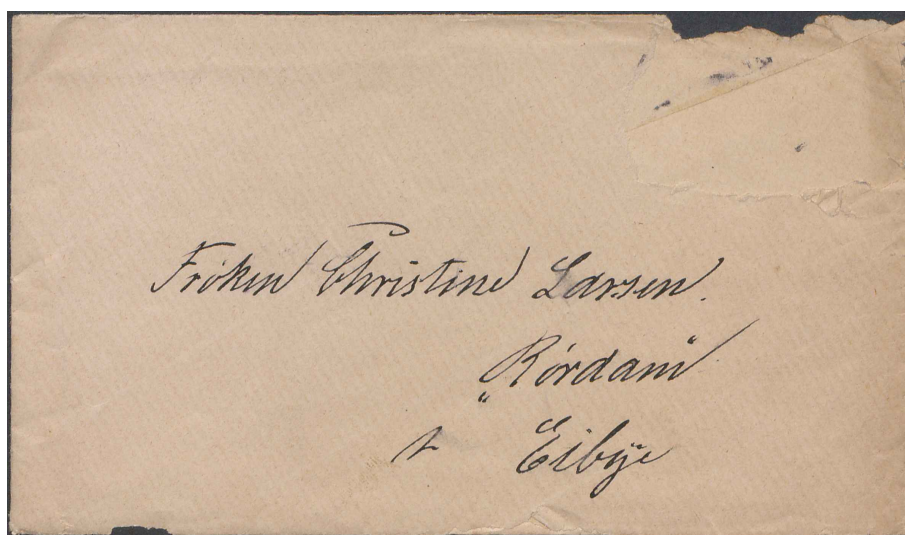 Frøken Christine Larsen.
„Rørdam“
pr Eibye